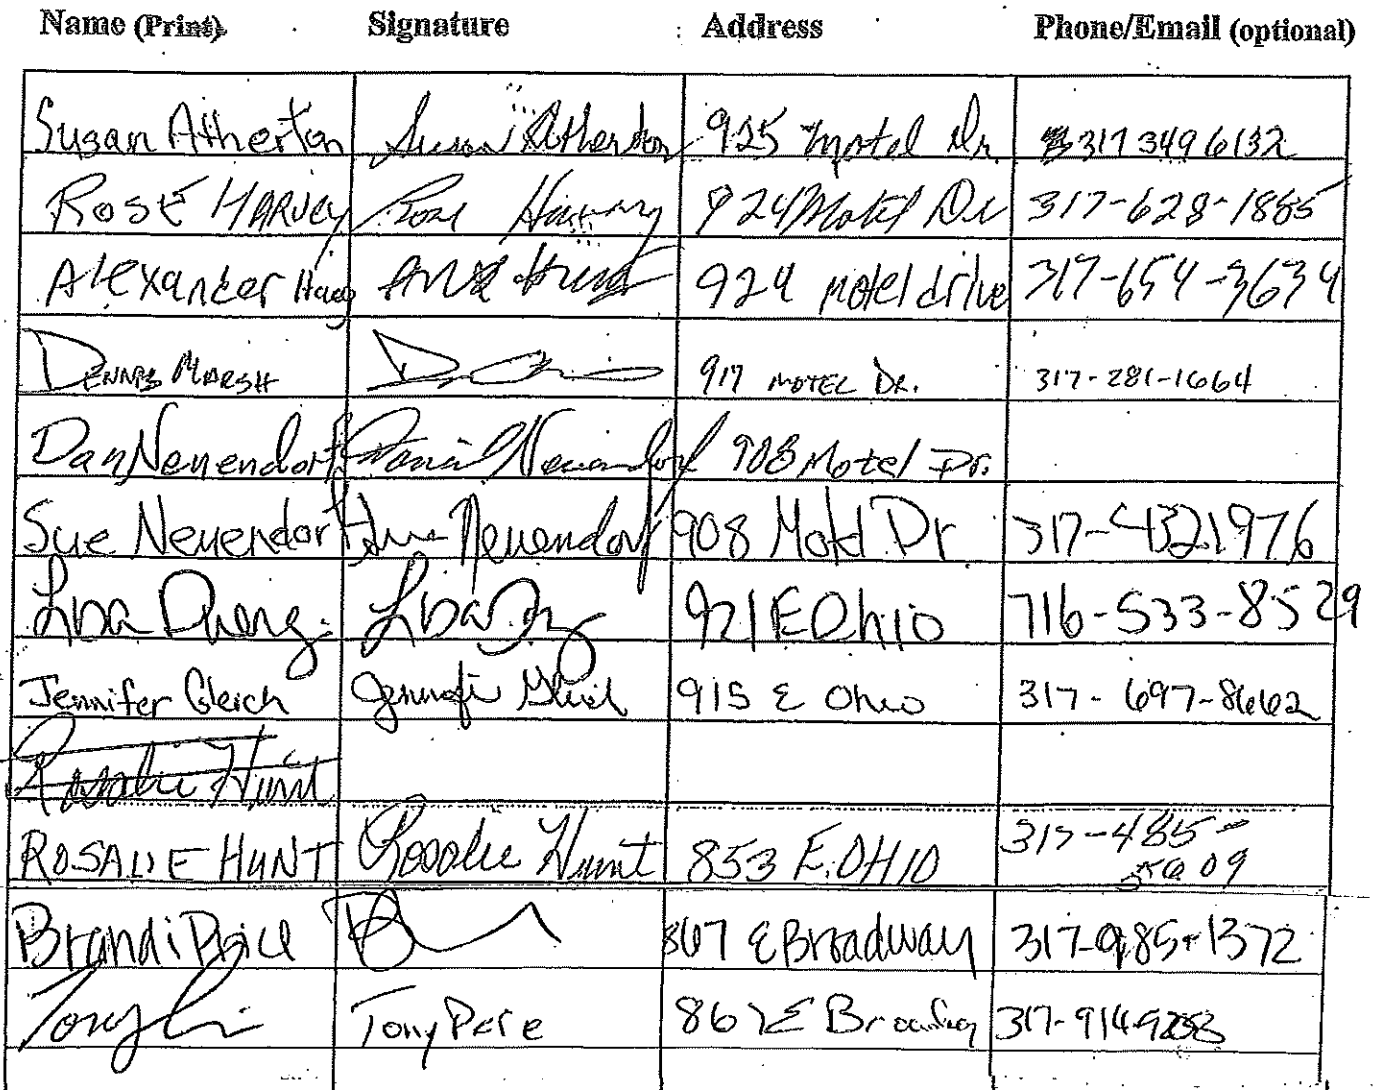 Name (Print) Signature Address Phone/Email (optional)
Susan Atherton Susan Atherton 925 Motel Dr. 317 349 6132
ROSE HARVEY Rose Harvey 924 Motel Dr 317-628-1885
Alexander 924 motel drive 317-654-3634
DENNIS MARSH 917 MOTEL DR. 317-281-1664
Dan Neuendorf Daniel Neuendorf 908 Motel Dr.
Sue Neuendorf Sue Neuendorf 908 Motel Dr 317-4321976
Lisa Lisa 921 E Ohio 716-533-8529
Jennifer Gleich Jennifer Gleich 915 E Ohio 317-697-8662
Rosalie Hunt
ROSALIE HUNT Rosalie Hunt 853 E. OHIO 317-485-
09
Brandi Price 867 E Broadway 317-985-1372
Tony Tony 867 E Broadway